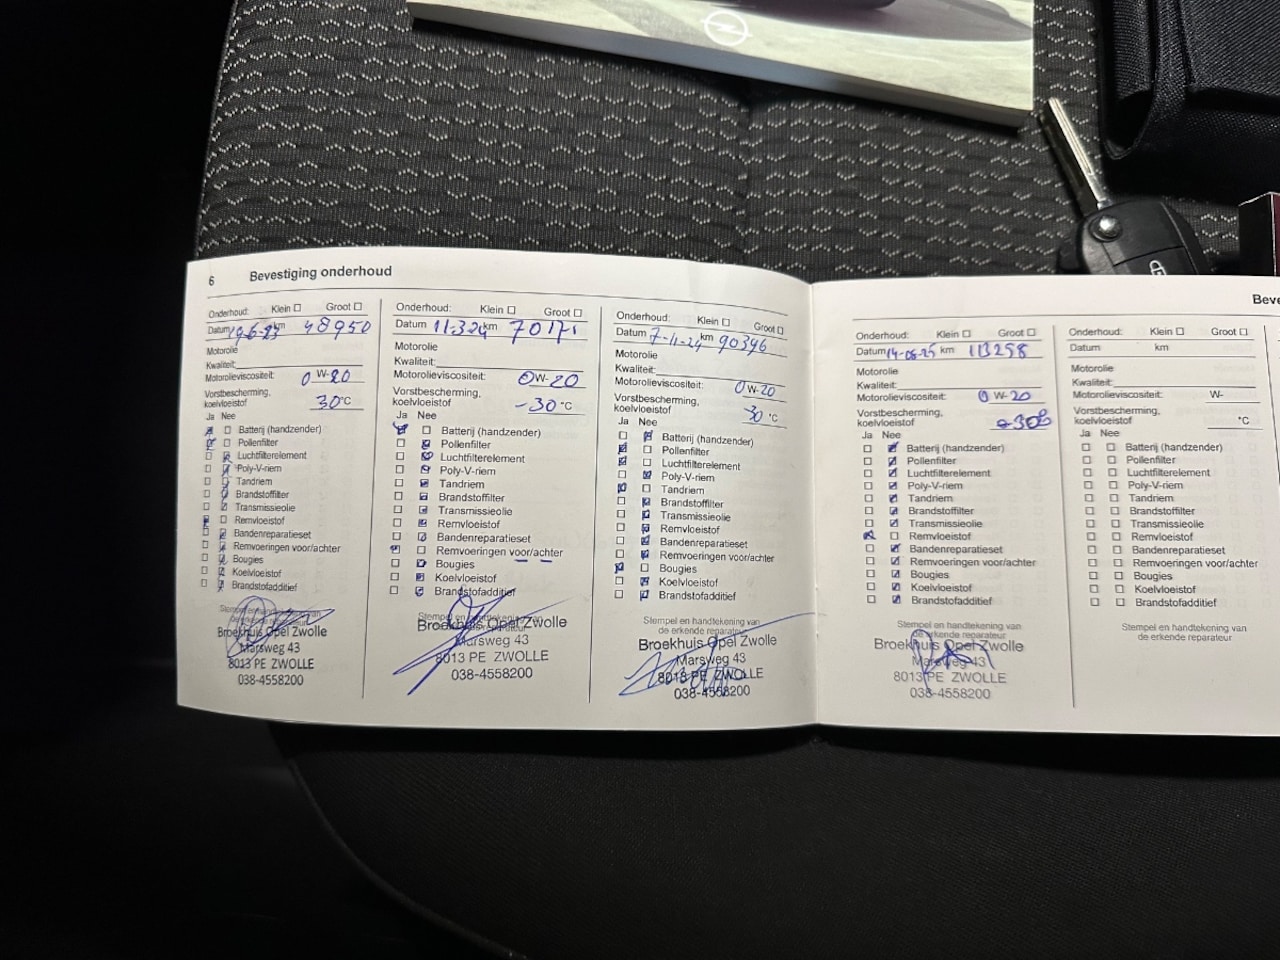 6 Bevestiging onderhoud
Onderhoud: Klein Groot
Datum 19-6-23 km 48950
Motorolie
Kwaliteit:
Motorolieviscositeit: 0 W-20
Vorstbescherming,
koelvloeistof 30 °C
Ja Nee
Batterij (handzender)
Pollenfilter
Luchtfilterelement
Poly-V-riem
Tandriem
Brandstoffilter
Transmissieolie
Remvloeistof
Bandenreparatieset
Remvoeringen voor/achter
Bougies
Koelvloeistof
Brandstofadditief
Stempel en handtekening van
de erkende reparateur
Broekhuis Opel Zwolle
Marsweg 43
8013 PE ZWOLLE
038-4558200
Onderhoud: Klein Groot
Datum 11-3-24 km 70171
Motorolie
Kwaliteit:
Motorolieviscositeit: 0 W-20
Vorstbescherming,
koelvloeistof -30 °C
Ja Nee
Batterij (handzender)
Pollenfilter
Luchtfilterelement
Poly-V-riem
Tandriem
Brandstoffilter
Transmissieolie
Remvloeistof
Bandenreparatieset
Remvoeringen voor/achter
Bougies
Koelvloeistof
Brandstofadditief
Stempel en handtekening van
Broekhuis Opel Zwolle
Marsweg 43
8013 PE ZWOLLE
038-4558200
Onderhoud: Klein Groot
Datum 7-11-24 km 90396
Motorolie
Kwaliteit:
Motorolieviscositeit: 0 W-20
Vorstbescherming,
koelvloeistof -30 °C
Ja Nee
Batterij (handzender)
Pollenfilter
Luchtfilterelement
Poly-V-riem
Tandriem
Brandstoffilter
Transmissieolie
Remvloeistof
Bandenreparatieset
Remvoeringen voor/achter
Bougies
Koelvloeistof
Brandstofadditief
Stempel en handtekening van
de erkende reparateur
Broekhuis Opel Zwolle
Marsweg 43
8013 PE ZWOLLE
038-4558200
Beve
Onderhoud: Klein Groot
Datum 14-08-25 km 113258
Motorolie
Kwaliteit:
Motorolieviscositeit: 0 W-20
Vorstbescherming,
koelvloeistof -30
Ja Nee
Batterij (handzender)
Pollenfilter
Luchtfilterelement
Poly-V-riem
Tandriem
Brandstoffilter
Transmissieolie
Remvloeistof
Bandenreparatieset
Remvoeringen voor/achter
Bougies
Koelvloeistof
Brandstofadditief
Stempel en handtekening van
de erkende reparateur
Broekhuis Opel Zwolle
Marsweg 43
8013 PE ZWOLLE
038-4558200
Onderhoud: Klein Groot
Datum km
Motorolie
Kwaliteit:
Motorolieviscositeit: W-
Vorstbescherming,
koelvloeistof °C
Ja Nee
Batterij (handzender)
Pollenfilter
Luchtfilterelement
Poly-V-riem
Tandriem
Brandstoffilter
Transmissieolie
Remvloeistof
Bandenreparatieset
Remvoeringen voor/achter
Bougies
Koelvloeistof
Brandstofadditief
Stempel en handtekening van
de erkende reparateur